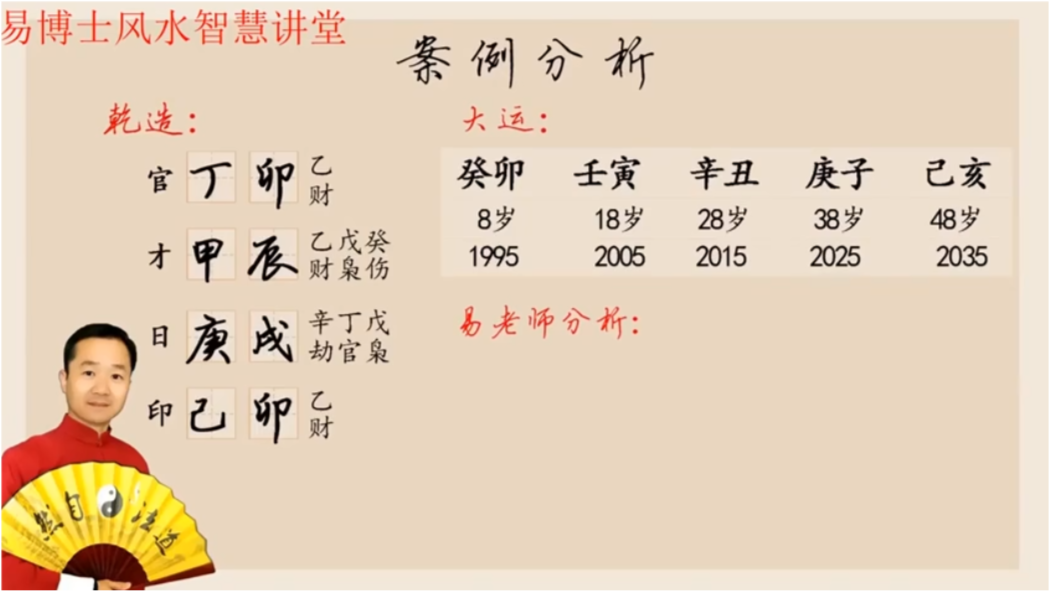 易博士风水智慧讲堂
案例分析
乾造：
官 丁 卯 乙
财
才 甲 辰 乙戊癸
财枭伤
日 庚 戌 辛丁戊
劫官枭
印 己 卯 乙
财
大运：
癸卯 壬寅 辛丑 庚子 己亥
8岁 18岁 28岁 38岁 48岁
1995 2005 2015 2025 2035
易老师分析：
然自法道